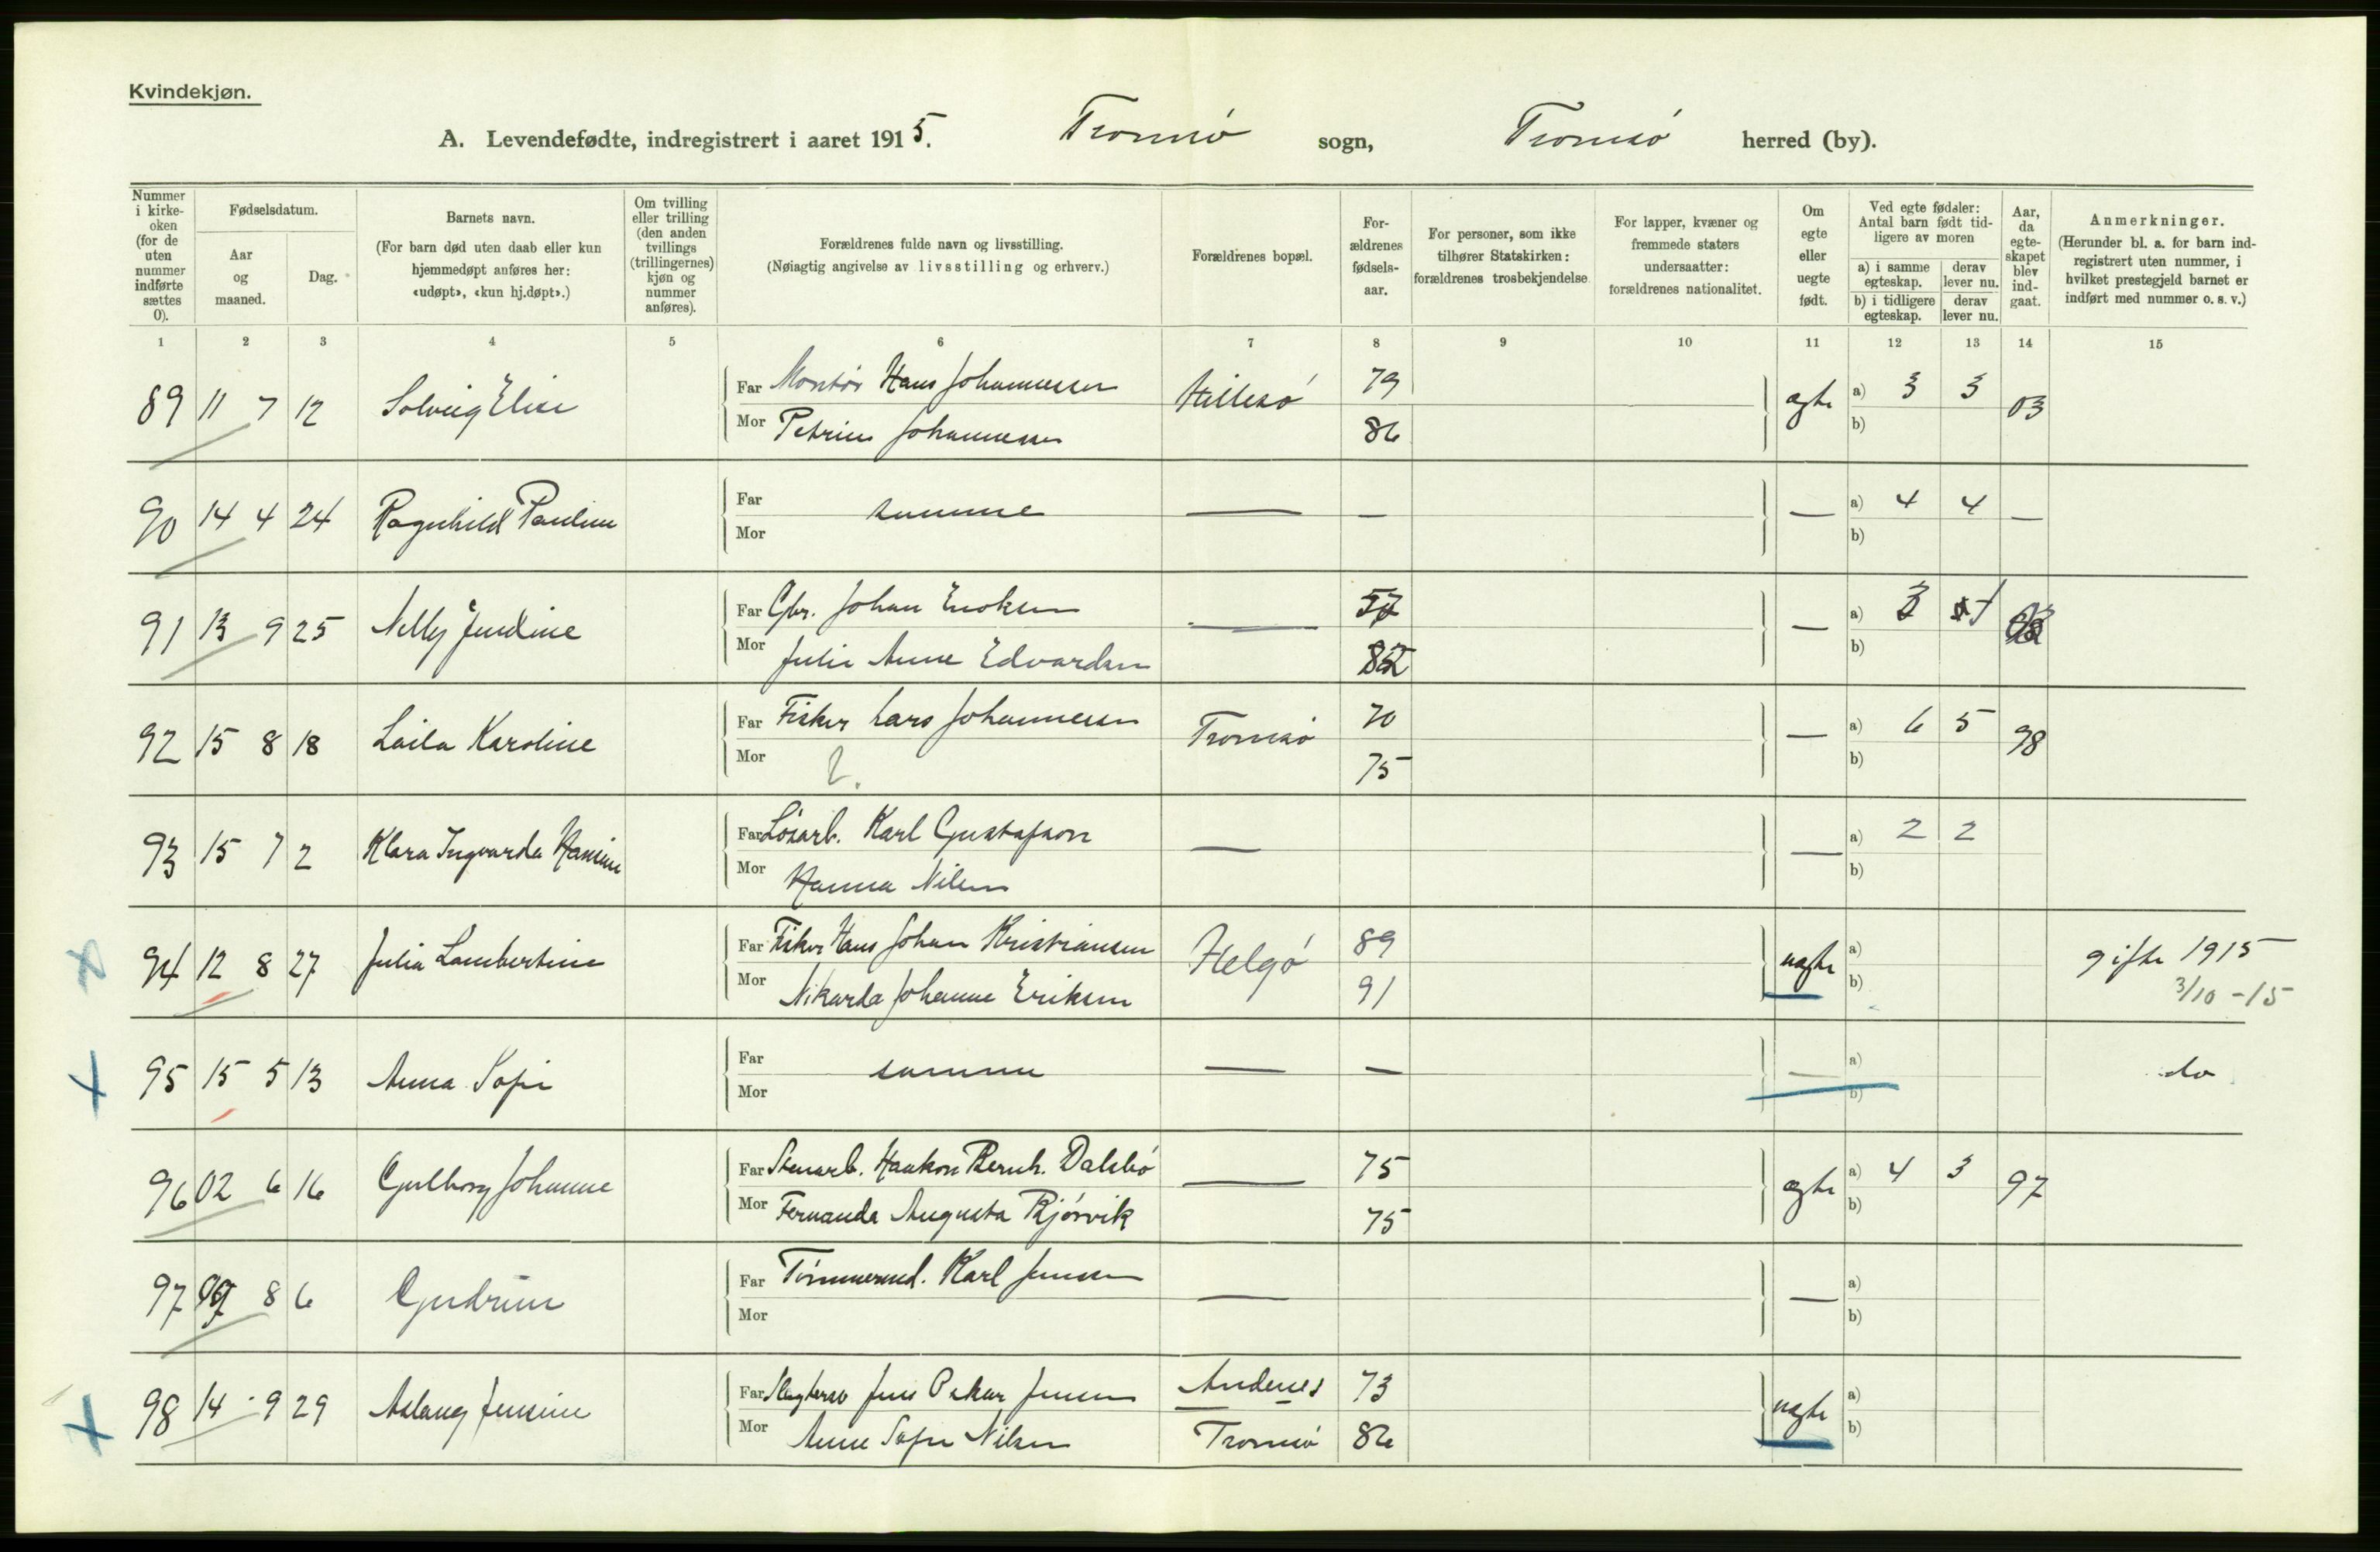 Kvindekjøn.
A. Levendefødte, indregistrert i aaret 1915. Tromsø sogn, Tromsø herred (by).
Nummer i kirke-oken (for de uten nummer indførte sættes 0).
Fødselsdatum.
Aar og maaned.
Dag.
Barnets navn.
(For barn død uten daab eller kun hjemmedøpt anføres her: «udøpt», «kun hj.døpt».)
Om tvilling eller trilling (den anden tvillings (trillingernes) kjøn og nummer anføres).
Forældrenes fulde navn og livsstilling.
(Nøiagtig angivelse av livsstilling og erhverv.)
Forældrenes bopæl.
For-ældrenes fødsels-aar.
For personer, som ikke tilhører Statskirken: forældrenes trosbekjendelse
For lapper, kvæner og fremmede staters undersaatter: forældrenes nationalitet.
Om egte eller uegte født.
Ved egte fødsler: Antal barn født tid-ligere av moren
a) i samme egteskap.
derav lever nu.
b) i tidligere egteskap.
derav lever nu.
Aar, da egte-skapet blev ind-gaat.
Anmerkninger.
(Herunder bl. a. for barn ind-registrert uten nummer, i hvilket prestegjeld barnet er indført med nummer o. s. v.)
1 2 3 4 5 6 7 8 9 10 11 12 13 14 15
89 11 7 12 Solveig Elise Far Montør Hans Johannessen Hillesø 79 ægte a) 3 3 03
Mor Petrine Johannessen 86 b)
90 14 4 24 Ragnhild Pauline Far samme — — — a) 4 4 —
Mor b)
91 13 9 25 Nelly Far Gbr. Johan Enoksen — 57 — a) 3
Mor Julie Anne Edvardsen b)
92 15 8 18 Laila Karoline Far Fisker Lars Johannessen Tromsø 70 — a) 6 5 98
Mor ? 75 b)
93 15 7 2 Klara Ingvarda Hansine Far Løsarb. Karl Gustafson — — a) 2 2
Mor Hanna Nilsen b)
94 12 8 27 Julia Lambertine Far Fisker Hans Johan Kristiansen Helgø 89 uægte a) gifte 1915
Mor Nikarda Johanne Eriksen 91 b) 3/10 -15
95 15 5 13 Anna Sofie Far samme — — — a) do
Mor b)
96 02 6 16 Gulborg Johanne Far Stenarb. Haakon Bernh. Dalsbø — 75 ægte a) 4 3 97
Mor Fernanda Augusta Bjørvik 75 b)
97 8 6 Gudrun Far Tømmermd. Karl Jensen — — a)
Mor b)
98 14 9 29 Aslaug Jensine Far Jens Oskar Jensen Andenes 73 uægte a)
Mor Anne Sofie Nilsen Tromsø 86 b)